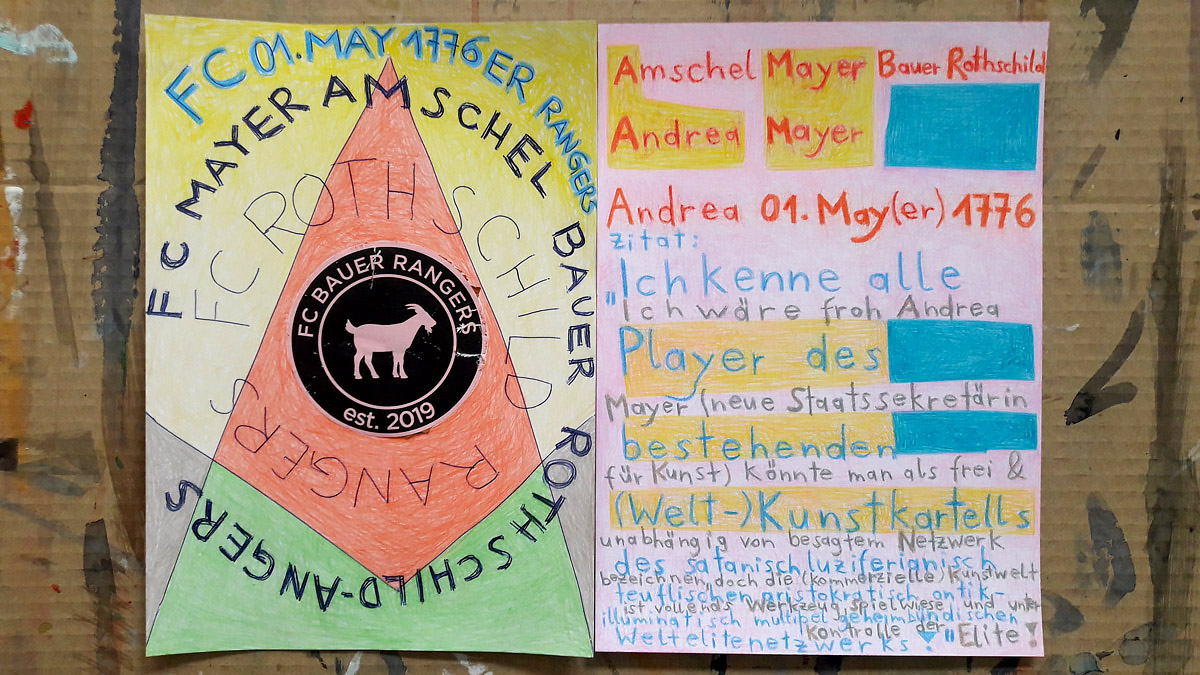 FC 01. MAY 1776ER RANGERS
FC MAYER AMSCHEL BAUER ROTHSCHILD-ANGERS
FC ROTHSCHILD
RANGERS
FC BAUER RANGERS
est. 2019
Amschel Mayer Bauer Rothschild
Andrea Mayer
Andrea 01. May(er) 1776
zitat:
„Ich kenne alle
Ich wäre froh Andrea
Player des
Mayer (neue Staatssekretärin
bestehenden
für Kunst) könnte man als frei &
(Welt-)Kunstkartells
unabhängig von besagtem Netzwerk
des satanisch luziferianisch
bezeichnen, doch die (kommerzielle) Kunstwelt
teuflischen aristokratisch antik-
ist vollends Werkzeug, Spielwiese und unter
illuminatisch multipel geheimbündischen
Kontrolle der "Elite!
Weltelitenetzwerks!